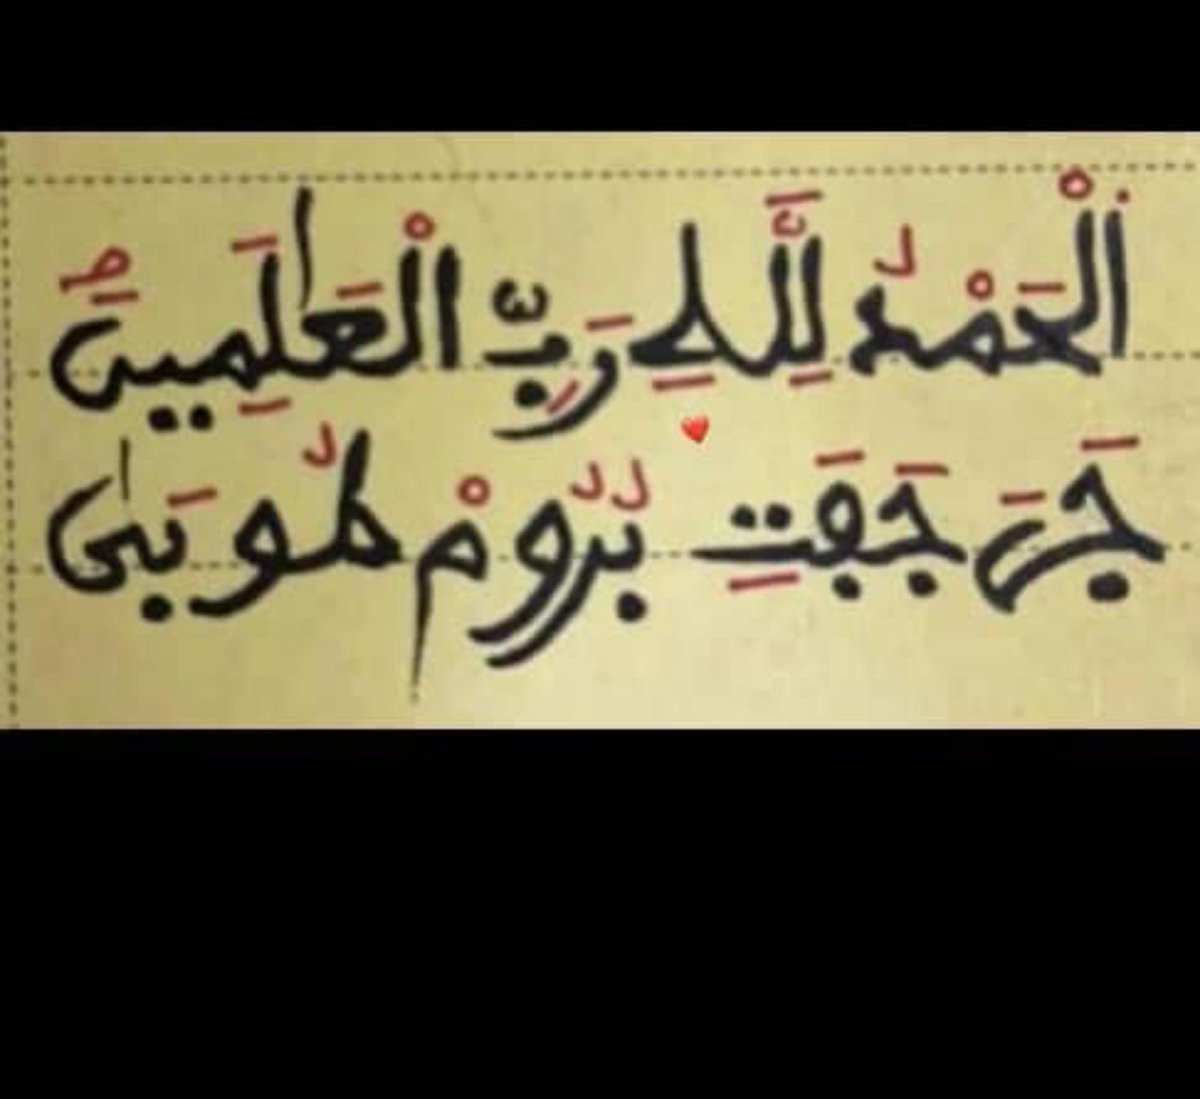 اَلْحَمْدُ لِلَّهِ رَبِّ الْعَٰلَمِينَ ط
جَرَ جَڢَتِ بُرُومْ طُوبَىٰ